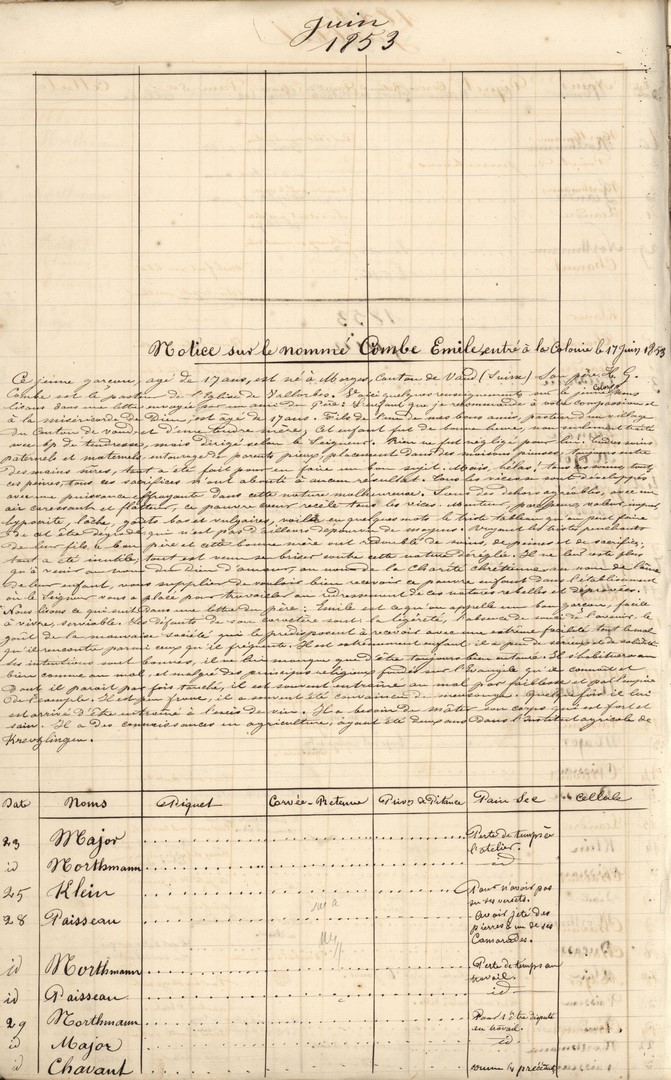 Juin
1853
Notice sur le nommé Combe Emile, entré à la Colonie le 17 Juin 1853
Ce jeune garçon, agé de 17 ans, est né à Morges, Canton de Vaud (Suisse) Son père H. G.
Combe est le pasteur de l'Eglise de Vallorbes. Voici quelques renseignements sur le jeune Colon
lisons dans une lettre envoyée par un ami du Père: L'enfant que je recommande à votre compassion et
à la miséricorde de Dieu, est agé de 17 ans. Fils de l'un de mes bons amis, pasteur d'un village
du Canton de Vaud, et d'une tendre mère, Cet enfant fut de bonne heure, non seulement traité
avec bp de tendresse, mais dirigé selon le Seigneur. Rien ne fut négligé pour lui.
paternels et maternels, entourage de parents pieux, placement dans des maisons pieuses, entre
des mains sûres, tout a été fait pour en faire un bon sujet. Mais, hélas! tous ces soins, toutes
ces peines, tous ces sacrifices n'ont abouti à aucun résultat. Tous les vices se sont développés
avec une puissance effrayante dans cette nature malheureuse. Sous des dehors agréables, avec un
air caressant et flatteur, ce pauvre cœur recèle tous les vices. menteur, paresseux, voleur, impur,
hypocrite, lâche, goûts bas et vulgaires, voilà en quelques mots le triste tableau que je peux faire
de cet être dégradé, qui n'est pas d'ailleurs dépourvu de moyens. Voyant les tristes penchans
de leur fils, le bon père et cette bonne mère ont redoublé de soins, de peines et de sacrifices,
tout a été inutile, tout est venu se briser contre cette nature déréglée. Il ne leur reste plus
qu'à venir au nom du Dieu d'amour, au nom de la Charité Chrétienne, au nom de l'âme
de leur enfant, vous supplier de vouloir bien recevoir ce pauvre enfant dans l'établissement
où le Seigneur vous a placé pour travailler au redressement de ces natures rebelles et dépravées.
Nous lisons ce qui suit dans une lettre du père: Emile est ce qu'on appelle un bon garçon, facile
à vivre, serviable. Les défauts de son caractère sont: la légèreté, l'absence de souci de l'avenir, le
goût de la mauvaise société qui le prédisposent à recevoir avec une extrême facilité tout le mal
qu'il rencontre parmi ceux qu'il fréquente. Il est extrêmement enfant, il a peu d'énergie et de solidité
Ses intentions sont bonnes, il ne lui manque que d'être toujours bien entouré. Il s'habituera au
bien comme au mal, et malgré des principes religieux fondés sur l'Evangile qu'il connait et
dont il parait par fois touché, il est souvent entraîné au mal par faiblesse et par l'empire
de l'exemple. Il est peu franc, il a souvent été convaincu de mensonge. quelque fois il lui
est arrivé d'être entraîné à l'excès de vin. Il a besoin de mâter son corps qui est fort et
sain. Il a des connaissances en agriculture, ayant été deux ans dans l'institut agricole de
Kreuzlingen.
Date Noms Piquet Corvée-Retenue Privon de Pitance Pain Sec Cellule
23 Major Perte de temps à
l'atelier.
id Northmann id
25 Klein Pour n'avoir pas
su ses versets.
28 Paisseau Avoir jeté des
pierres à un de ses
Camarades.
id Northmann Perte de temps au
travail.
id Paisseau id
29 Northmann Pour s'être disputé
en travail.
id Major id
id Chavant comme les précédents